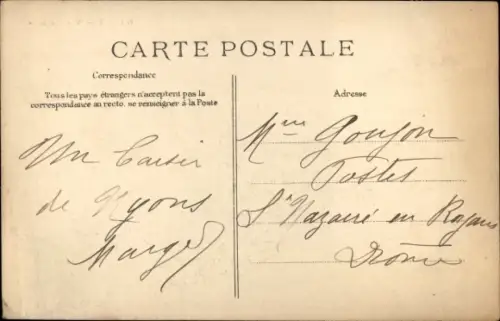 CARTE POSTALE
Correspondance
Tous les pays étrangers n'acceptent pas la
correspondance au recto. se renseigner à la Poste
Un baiser
de Nyons
Adresse
Mme Goujon
Postes
St Nazaire en Royans
Drôme